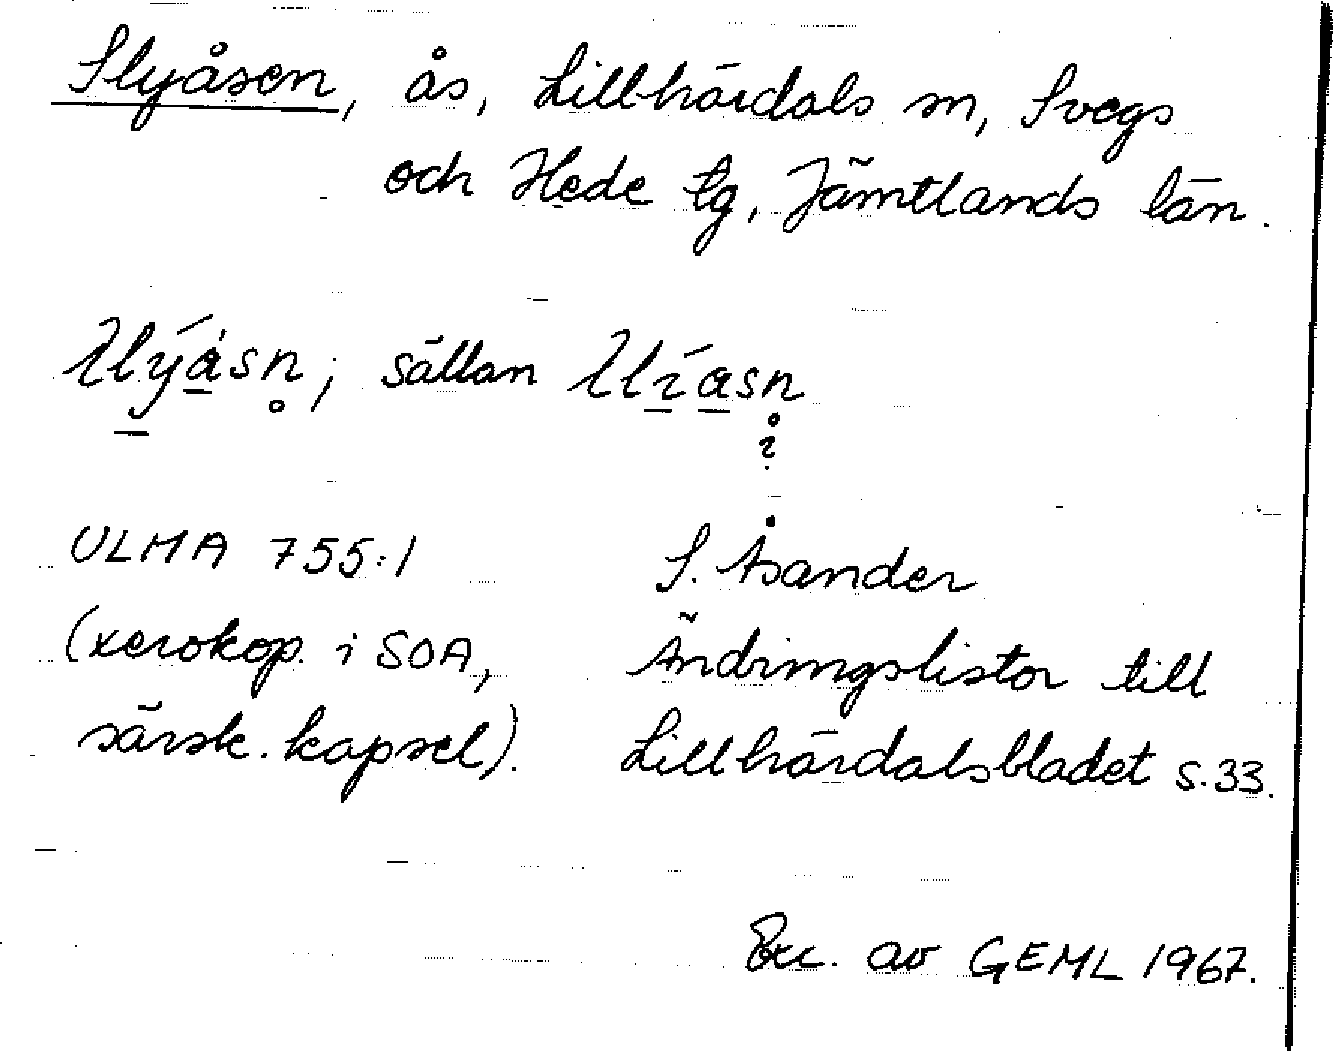 Slyåsen, ås, Lillhärdals sn, Svegs
och Hede tg, Jämtlands län.
sällan
ULMA 755:1 S. Åsander
(xerokop. i SOA, Ändringslistor till
särsk. kapsel). Lillhärdalsbladet s. 33.
Exc. av GEML 1967.